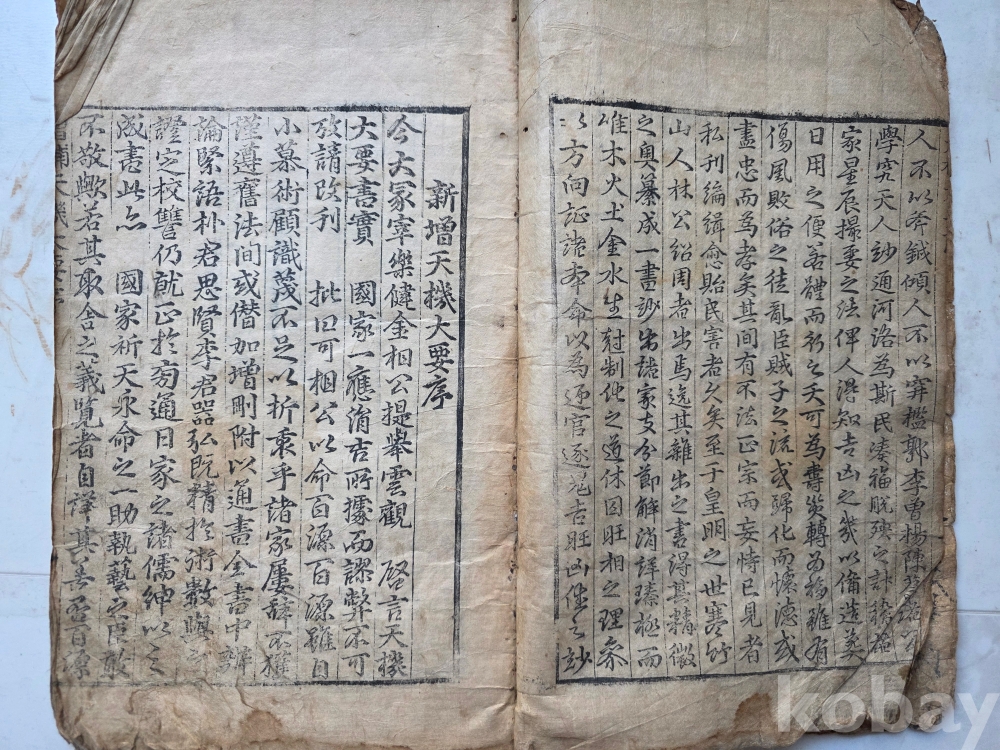 人不以斧鉞傾人不以穽檻郭李曾楊陳
學究天人紗通河洛為斯民湊福脫殃之計
家星辰撮要之法俾人得知吉凶之幾以備造葬
日用之便若體而行之夭可為壽災轉為福雖有
傷風敗俗之徒亂臣賊子之流或歸化而懷德或
盡忠而為孝矣其間有不法正宗而妄恃已見者
私刊編緝愈貽民害者久矣至于皇明之世寒竹
山人林公紹周者出焉迄其雜出之書得其精微
之奧纂成一書紗宗諸家支分節解消詳臻極而
唯木火土金水生尅制化之道休囚旺相之理參
以方向証諸本命以為逐官逐吉旺凶
新增天機大要序
今大冢宰樂健金相公提舉雲觀 啓言天機
大要書實 國家一應涓吉所據而謬弊不可
放請改刊 批曰可相公以命百源百源雖自
小慕術顧識蔑不足以折衷乎諸家屢辭不獲
謹遵舊法間或僭加增刪附以通書全書中辨
論緊語朴君思賢李君器弘既精於術數與
證定校讐仍就正於旁通日家之諸儒紳以之
成書此亦 國家祈天永命之一助執藝之臣敢
不敬歟若其取舍之義覽者自譯其善否百源